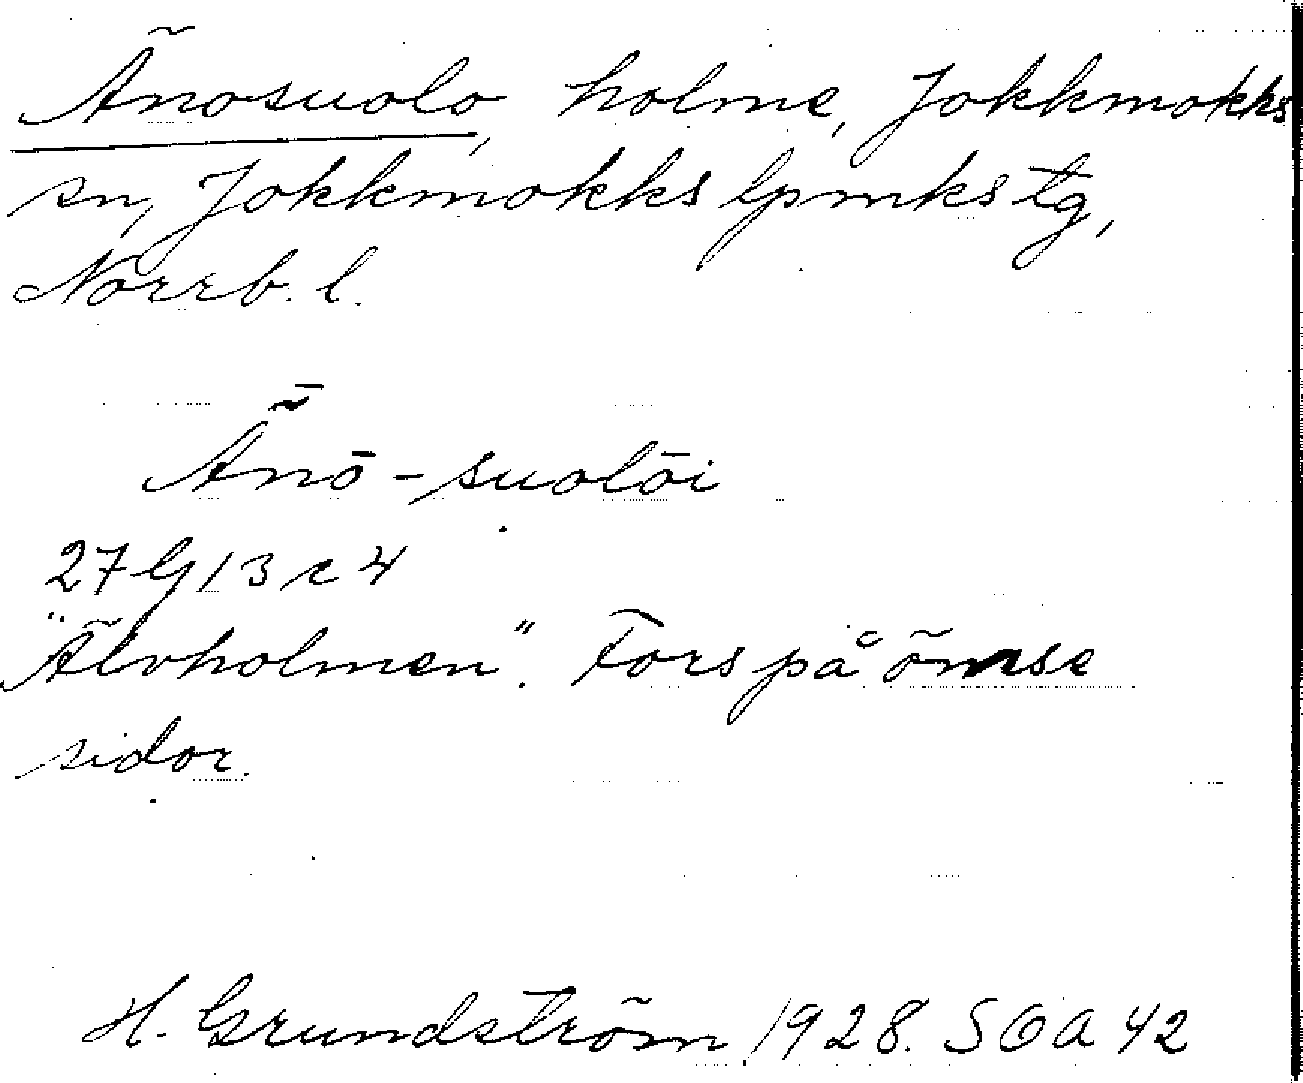 Änosuolo, holme, Jokkmokks
sn, Jokkmokks lpmks tg,
Norrb. l.
Ǟnō-suolōi
27 G 13 c 4
"Älvholmen". Fors på ömse
sidor.
H. Grundström 1928. SOA 42